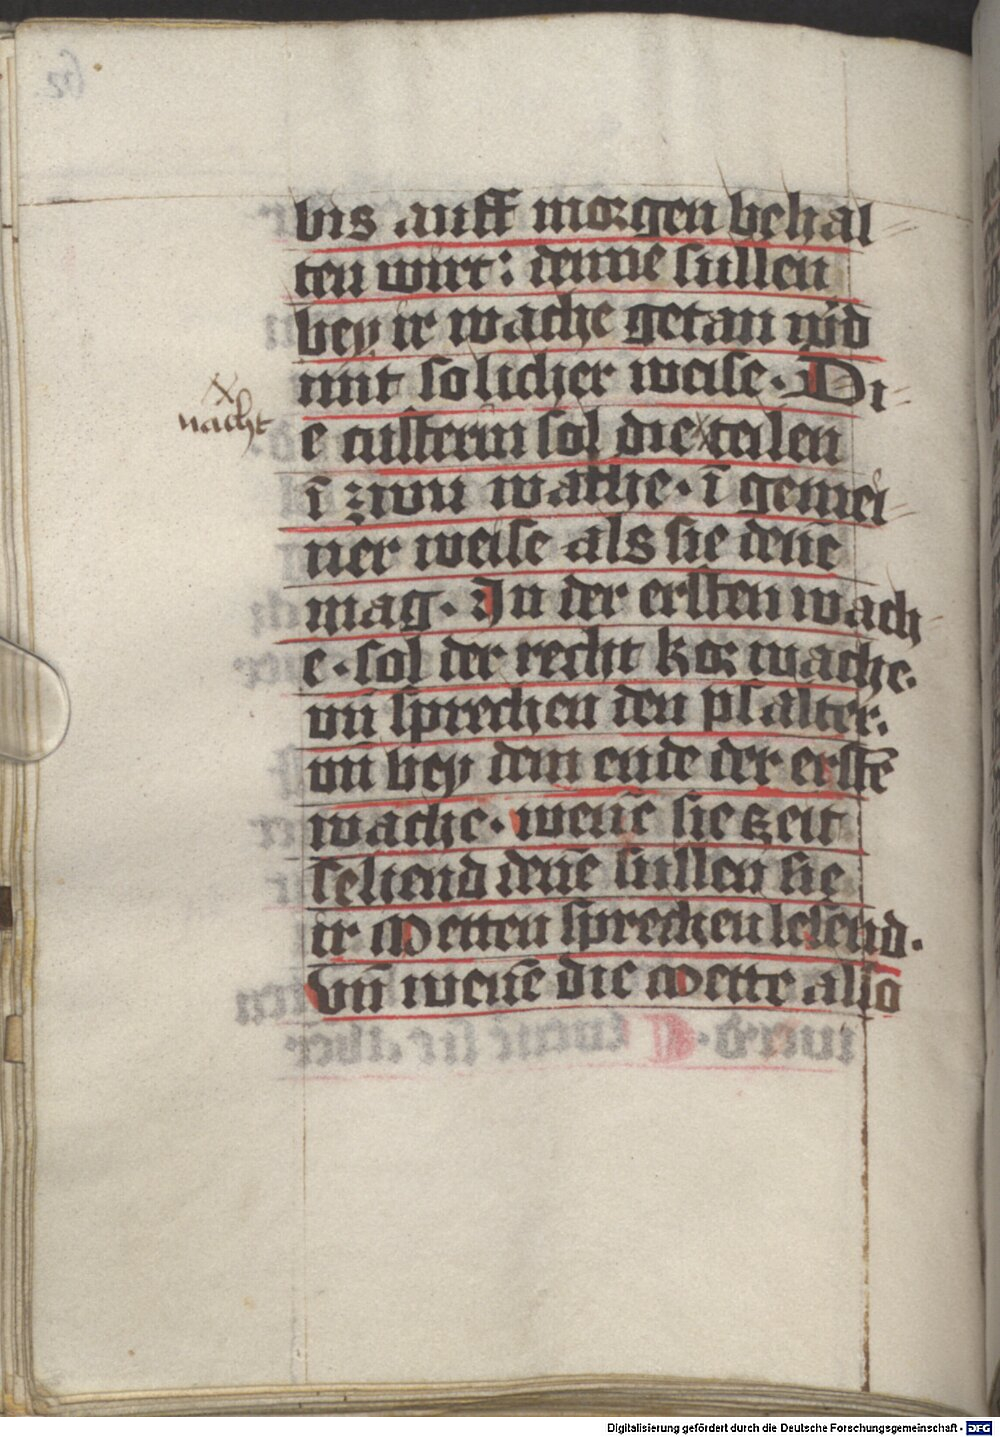 bis auff morgen behal
ten wirt: denne sullen
bey ir wache getan wͥd
mit solicher weise. Di
x
nacht
e custerin sol die x teilen
ī zwu wache. ī gemei
ner weise als sie deñe
mag. In der ersten wach
e. sol der recht kor wache.
vn̄ sprechen den psalter.
vn̄ bey dem ende der erstē
wache. weñe sie zeit
sehend deñe sullen sie
ir Metten sprechen lesend.
Vn̄ weñe die Mette also
Digitalisierung gefördert durch die Deutsche Forschungsgemeinschaft - DFG